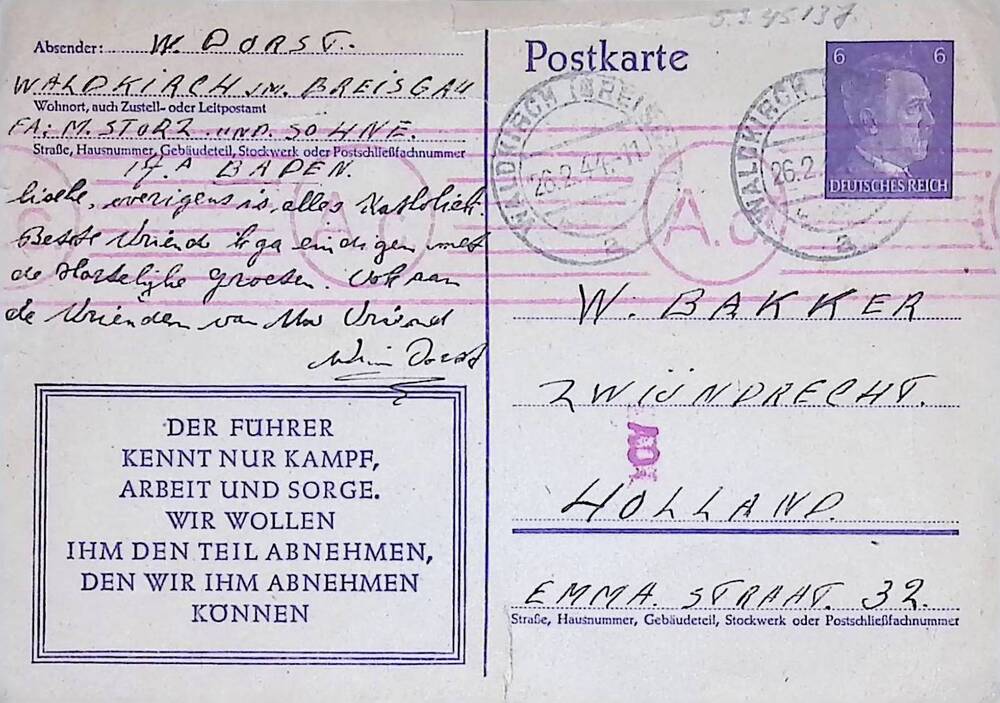 5.3.45 137.
Absender: W. DORST.
WALDKIRCH IM. BREISGAU
Wohnort, auch Zustell- oder Leitpostamt
FA: M. STORZ UND. SOHNE.
Straße, Hausnummer, Gebäudeteil, Stockwerk oder Postschließfachnummer
BADEN.
overigens is alles Katholiek.
Beste Vriende ik ga eindigen met
de Hartelijke groeten. Ook aan
de Vrienden van Uw Vriend
Dorst
DER FÜHRER
KENNT NUR KAMPF,
ARBEIT UND SORGE.
WIR WOLLEN
IHM DEN TEIL ABNEHMEN,
DEN WIR IHM ABNEHMEN
KÖNNEN
Postkarte
6 6
DEUTSCHES REICH
WALDKIRCH (BREISGAU)
26.2.44.-11
a
WALDKIRCH
26.2.
a
A.c
A.c
W. BAKKER
ZWIJNDRECHT.
HOLLAND.
EMMA. STRAAT. 32.
Straße, Hausnummer, Gebäudeteil, Stockwerk oder Postschließfachnummer